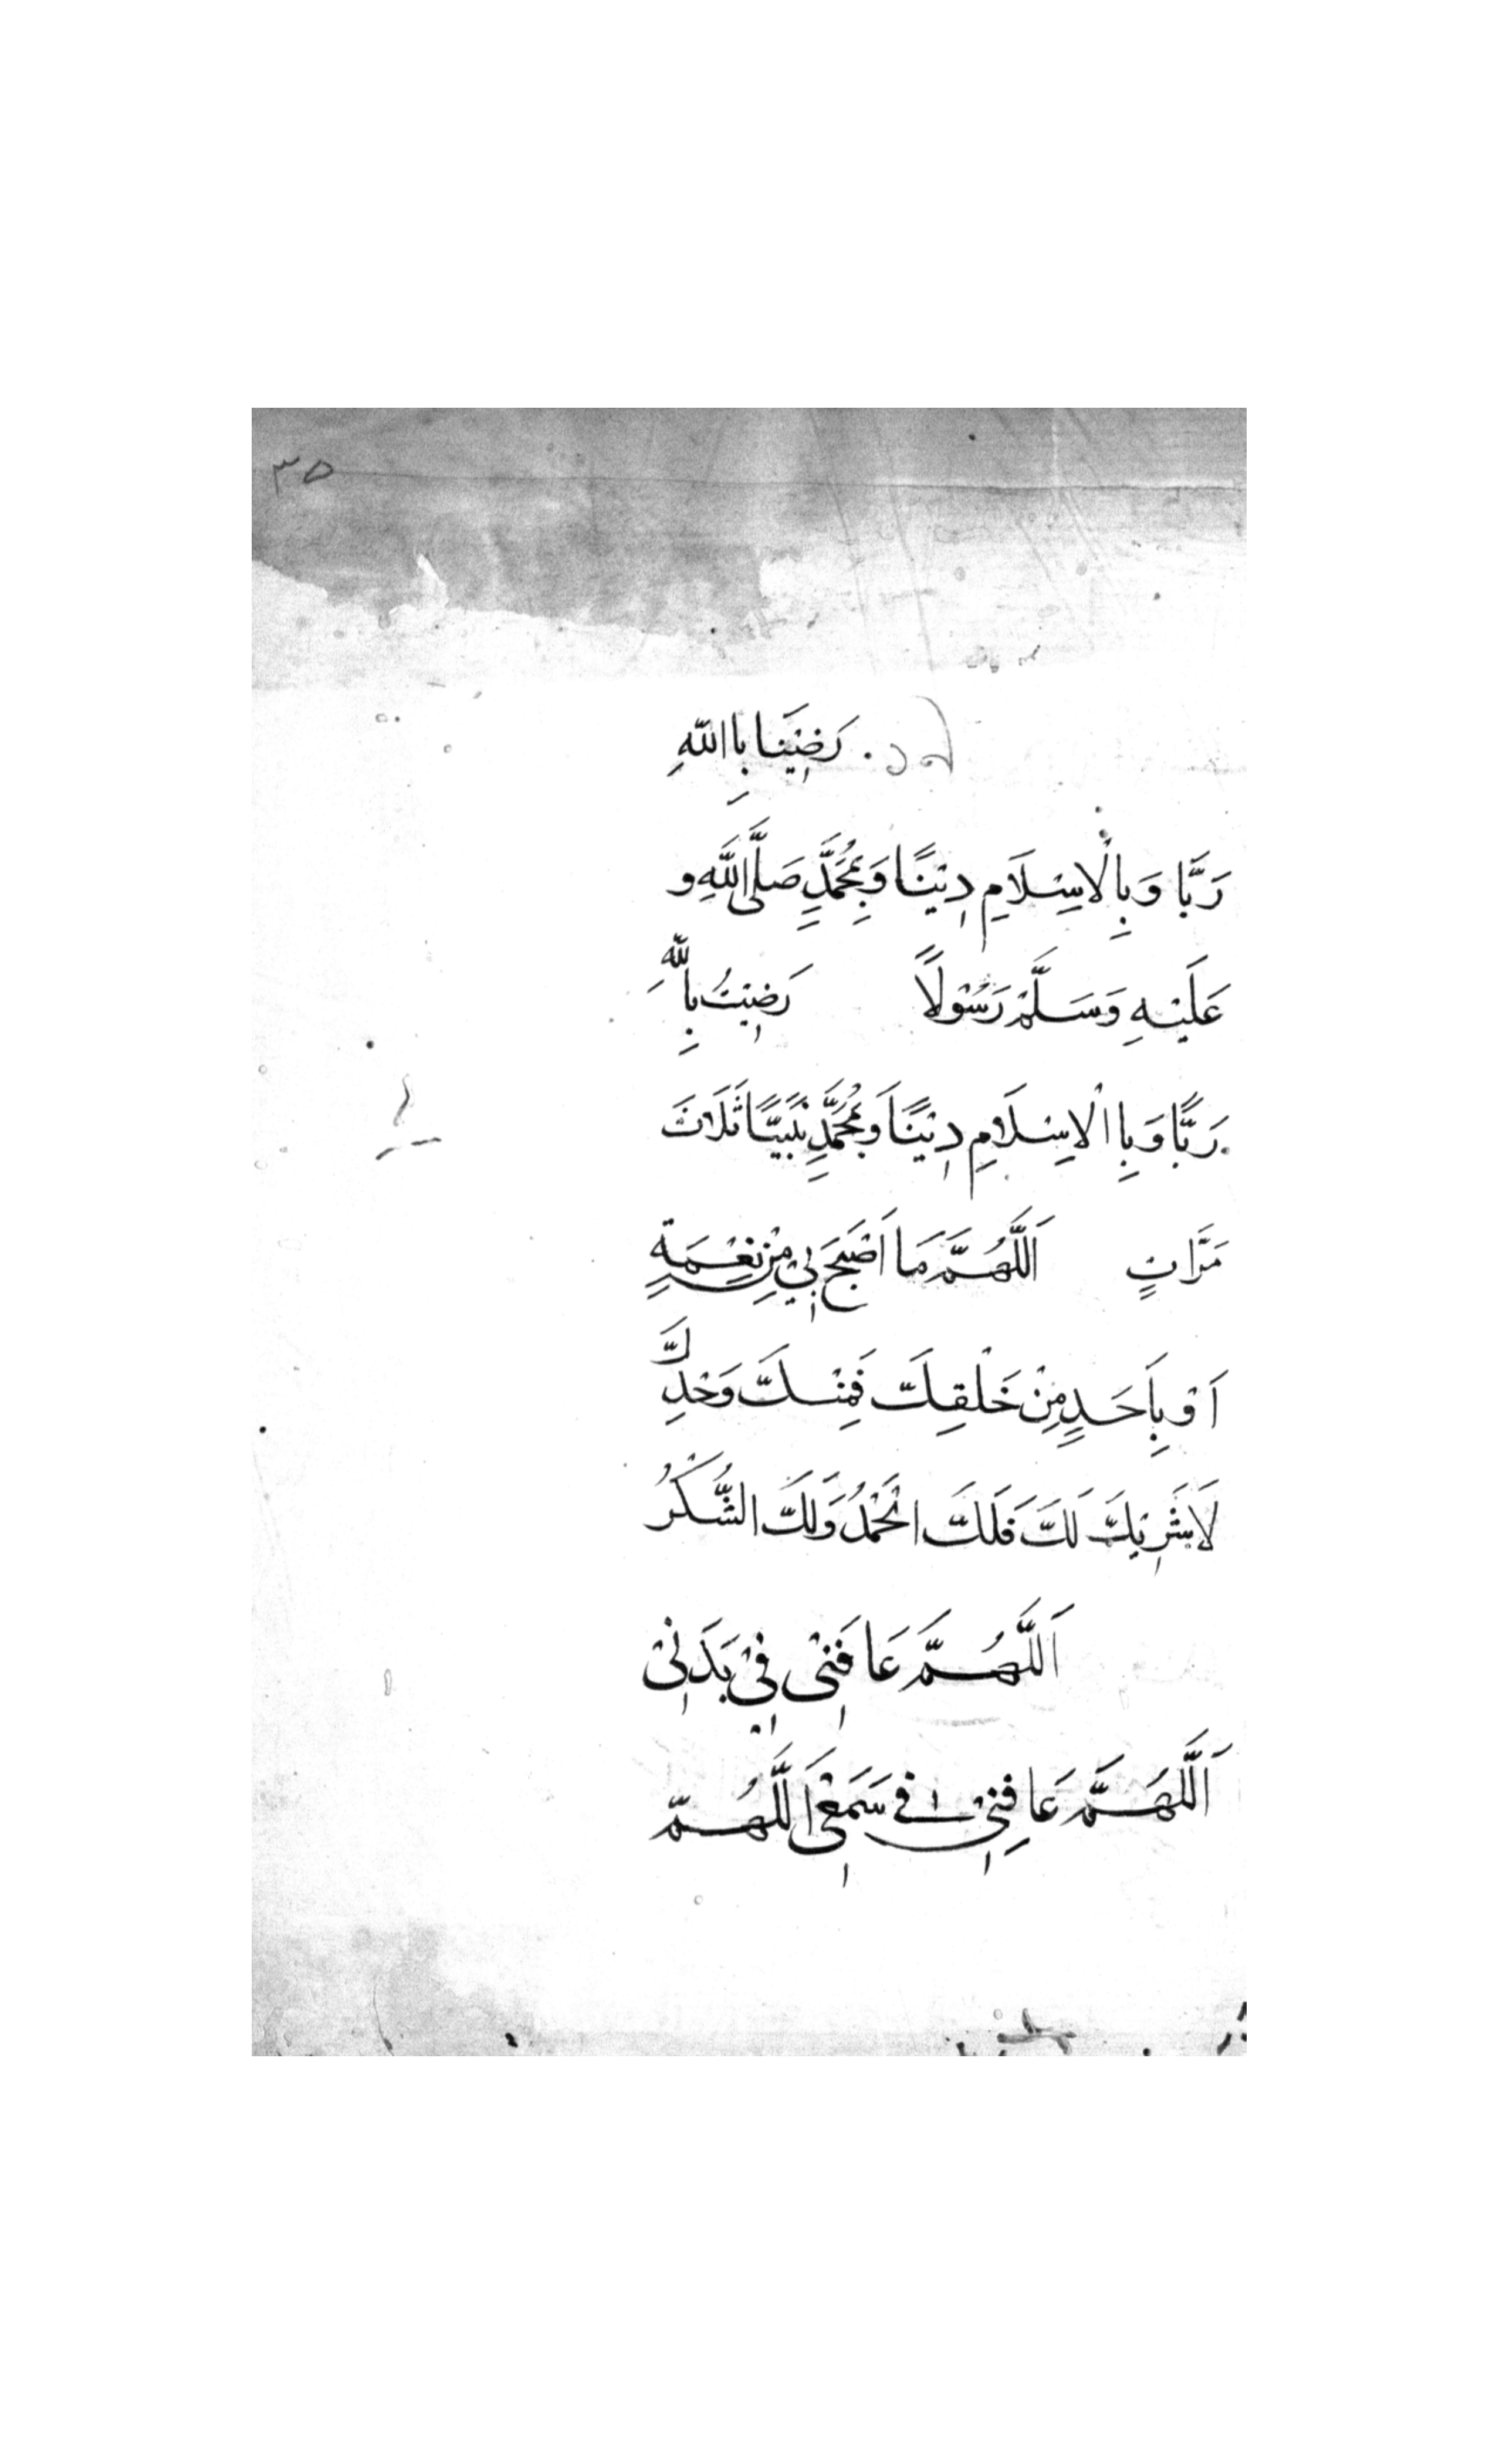 ٣٥
رَضِيْنَا بِاللّٰهِ
رَبًّا وَبِالْاِسْلَامِ دِيْنًا وَبِمُحَمَّدٍ صَلَّى اللّٰهِ و
عَلَيْهِ وَسَلَّمْ رَسُوْلًا رَضِيْتُ بِاللّٰهِ
رَبًّا وَبِا الْاِسْلَامِ دِيْنًا وَبِمُحَمَّدٍ نَبِيًّا ثَلَاثَ
مَرَّاتٍ اَللّٰهُمَّ مَا اَصْبَحَ بِيْ مِنْ نِعْمَةٍ
اَوْ بِاَحَدٍ مِنْ خَلْقِكَ فَمِنْكَ وَحْدِكَ
لَا شَرِيْكَ لَكَ فَلَكَ الْحَمْدُ وَلَكَ الشُّكْرُ
اَللّٰهُمَّ عَافَنِيْ فِيْ بَدَنِيْ
اَللّٰهَمَّ عَافِنِيْ فِي سَمْعِيْ اَللّٰهُمَّ